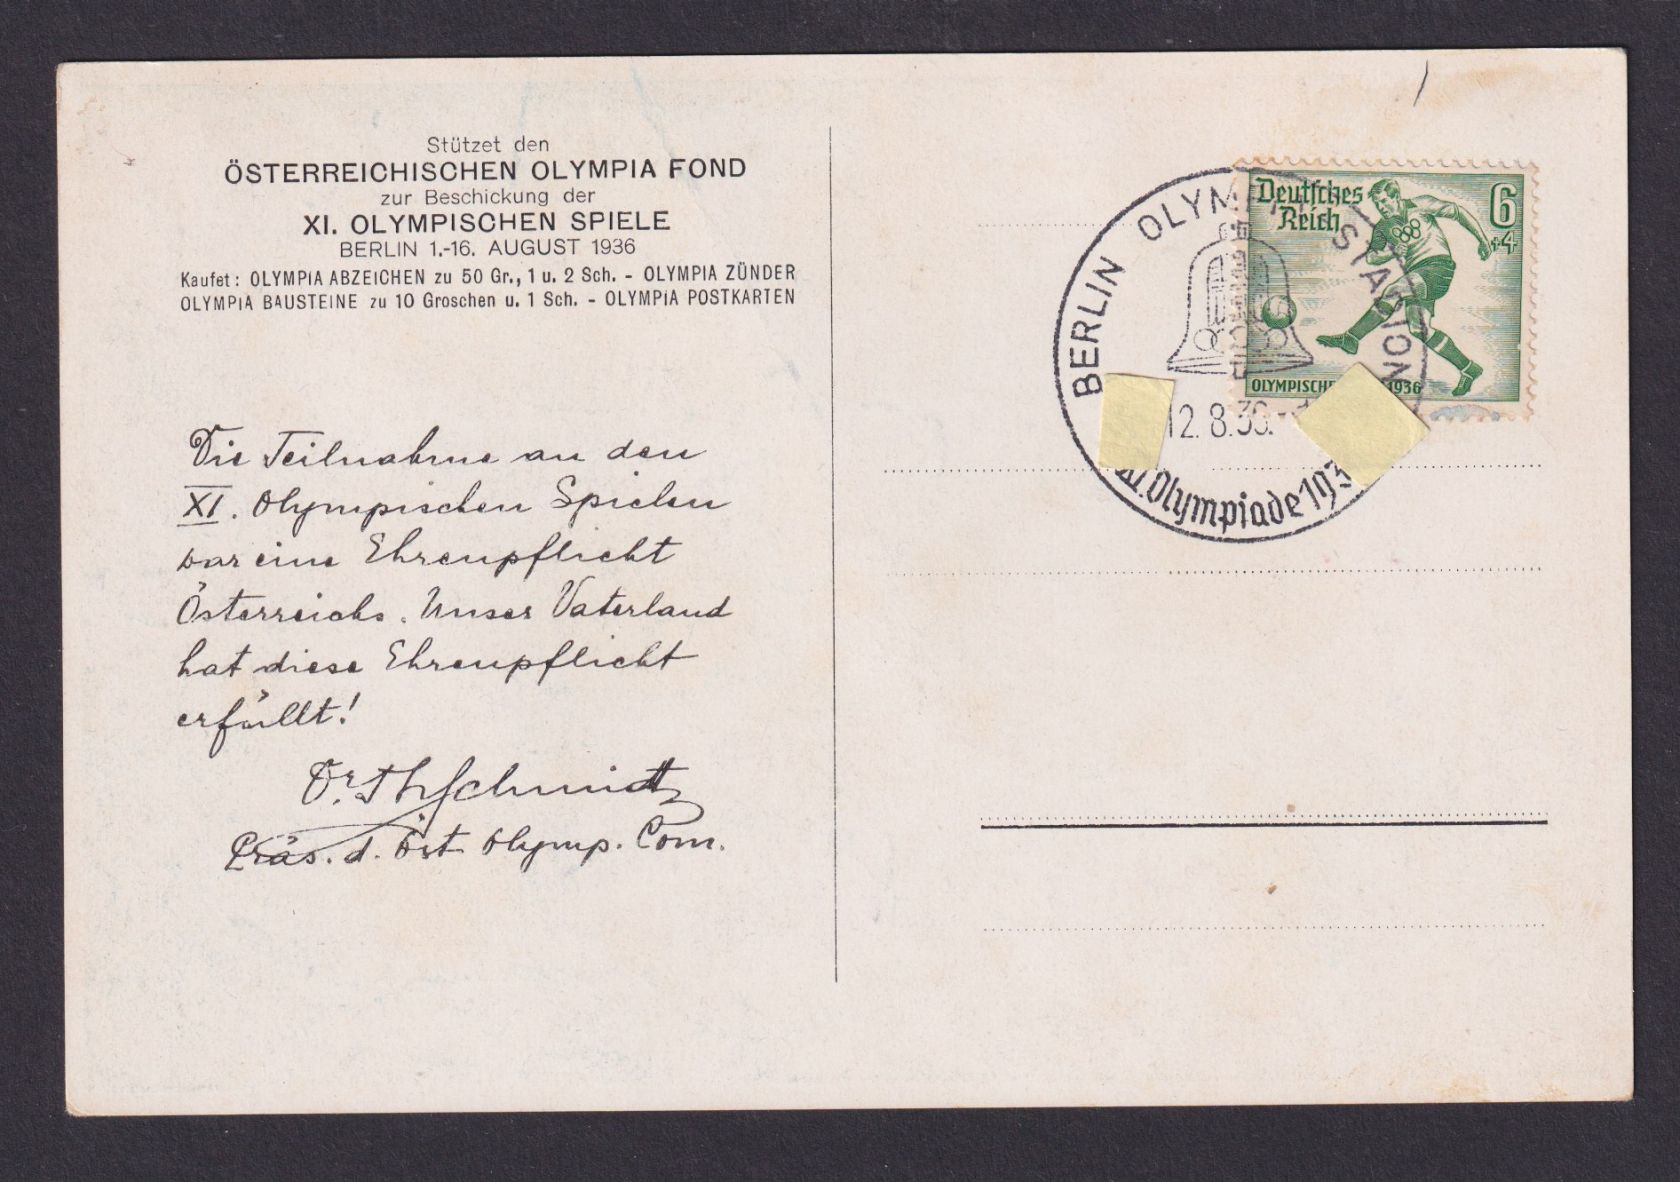 Stützet den
ÖSTERREICHISCHEN OLYMPIA FOND
zur Beschickung der
XI. OLYMPISCHEN SPIELE
BERLIN 1.-16. AUGUST 1936
Kaufet: OLYMPIA ABZEICHEN zu 50 Gr., 1 u. 2 Sch. - OLYMPIA ZÜNDER
OLYMPIA BAUSTEINE zu 10 Groschen u. 1 Sch. - OLYMPIA POSTKARTEN
Die Teilnahme an den
XI. Olympischen Spielen
war eine Ehrenpflicht
Österreichs. Unser Vaterland
hat diese Ehrenpflicht
erfüllt!
Dr. Th Schmidt
Präs. d. Öst Olymp. Com.
BERLIN OLYMPIA STADION
12.8.36.
XI. Olympiade 193
Deutsches
Reich
6
+4
OLYMPISCHE 1936